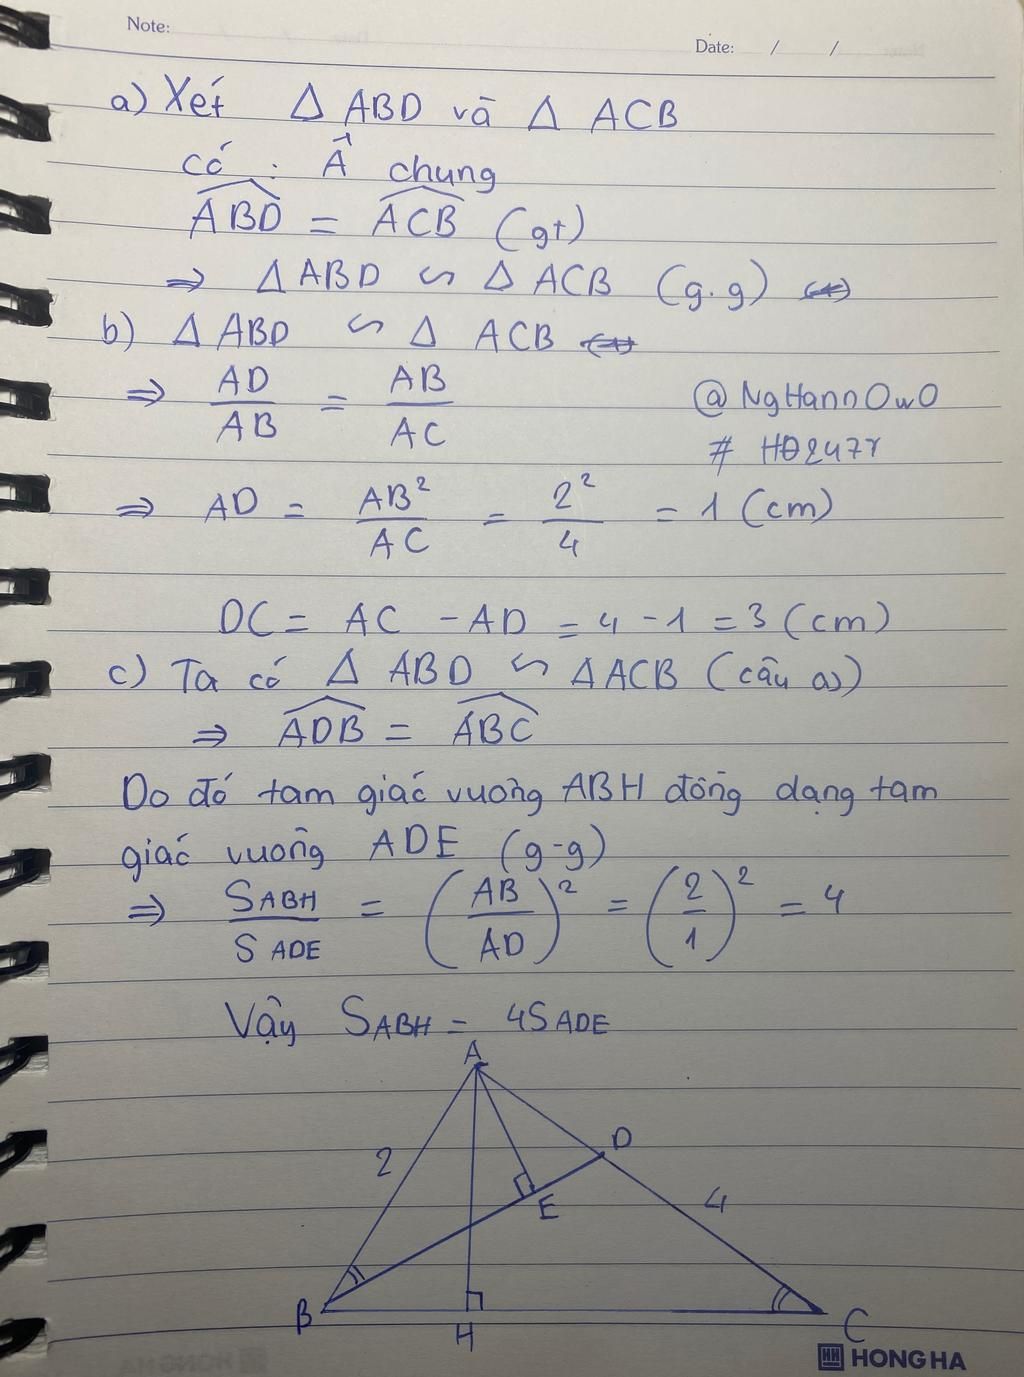 Note:
Date: / /
a) Xét Δ ABD và Δ ACB
có : Â chung
ABD = ACB (gt)
⇒ Δ ABD ∽ Δ ACB (g.g)
b) Δ ABD ∽ Δ ACB
⇒ AD/AB = AB/AC
@NgHannOwO
# HĐ247r
⇒ AD = AB²/AC = 2²/4 = 1 (cm)
DC = AC - AD = 4 - 1 = 3 (cm)
c) Ta có Δ ABD ∽ Δ ACB (câu a)
⇒ ADB = ABC
Do đó tam giác vuông ABH đồng dạng tam
giác vuông ADE (g-g)
⇒ SABH/SADE = (AB/AD)² = (2/1)² = 4
Vậy SABH = 4SADE
A
D
2
4
E
B
H
C
HONG HA